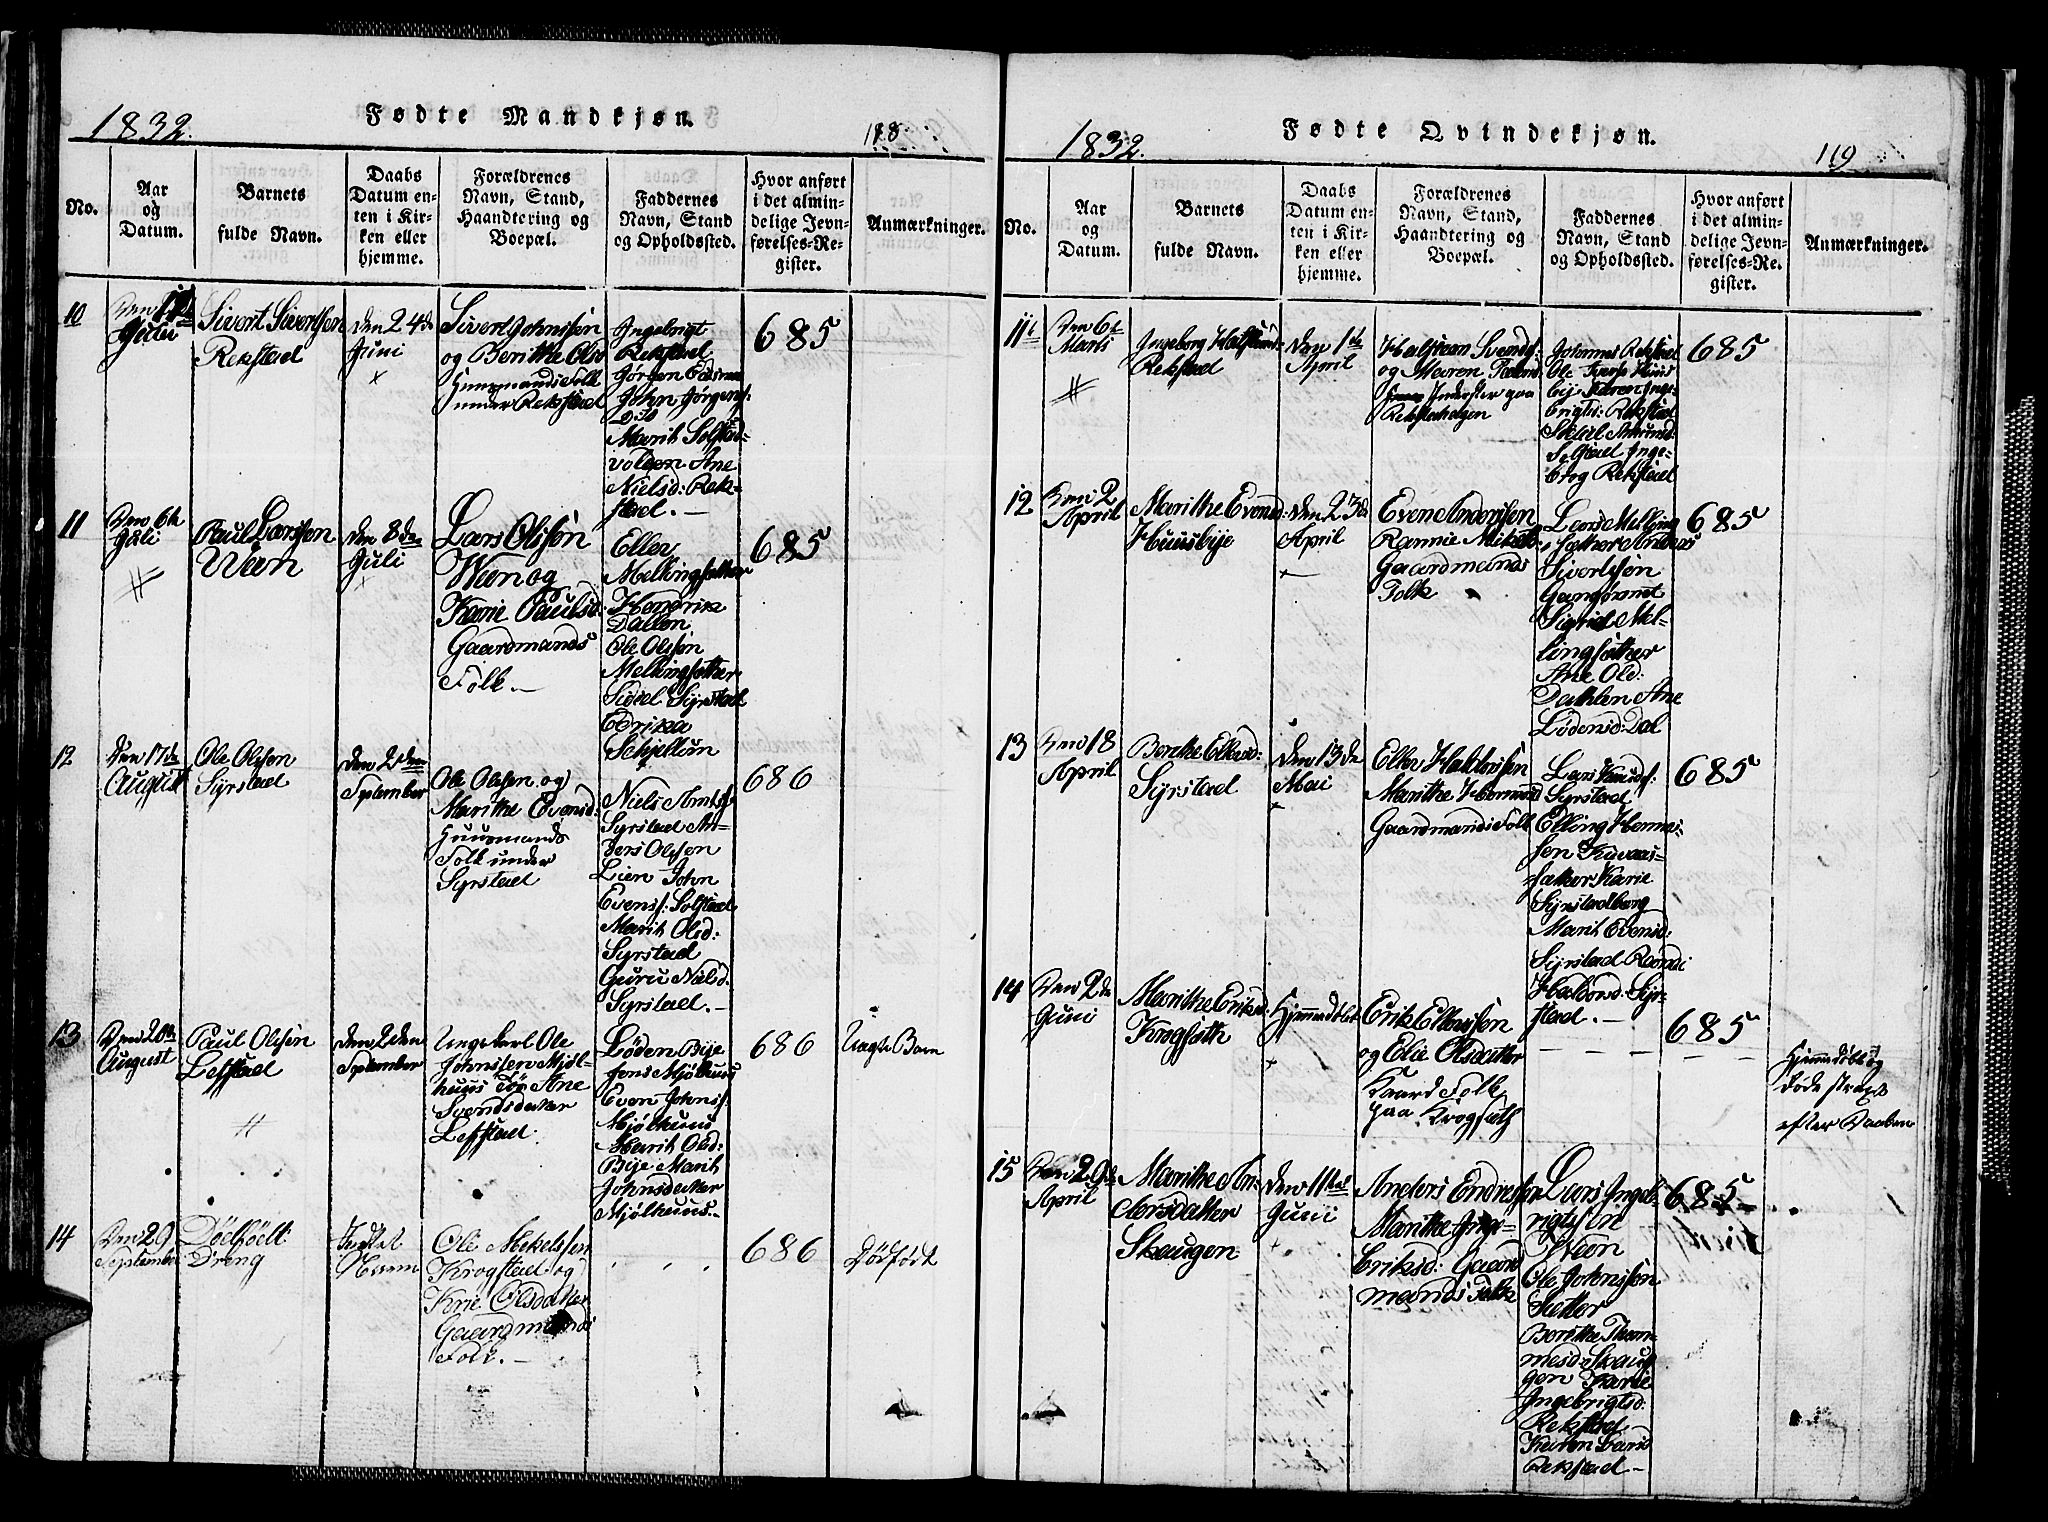 1832.
Fødte Mandkjøn.
118
No.
Aar
og
Datum.
Barnets
fulde Navn.
Daabs
Datum en-
ten i Kir-
ken eller
hjemme.
Forældrenes
Navn, Stand,
Haandtering og
Boepæl.
Faddernes
Navn, Stand
og Opholdssted.
Hvor anført
i det almin-
delige Jevn-
førelses-Re-
gister.
Anmærkninger.
10
Den
Juli
Sivert Sivertsen
Rekstad
den 24de
Juni
Sivert Johnssen
og Berithe Ols
Huusmands Folk
under Rekstad
Ingebrigt
Rekstad
Jørgen
John Jørgens:
Marit Solstad-
volden Ane
Nielsd: Rek-
stad.
685
11
Den 6te
Juli
Paul Larssen
Wien
den 8de
Juli
Lars Olssøn
Wien og
Karie Paulsd:
Gaardmands
Folk.
Eller
Melkingsæther
Hendrik
Dallen
Ole Olssøn
Melkingsæther
Sidsel Syrstad
Edrika
Schjellun
685
12
Den 17de
August
Ole Olssen
Syrstad
den 2den
September
Ole Olssen og
Marithe Evensd:
Huusmands
Folk under
Syrstad
Niels Arntss:
Syrstad An-
ders Olssen
Lien John
Evenss: Solstad
Marit Olsd:
Syrstad
Guru Nielsd:
Syrstad.
686
13
Den 20de
August
Paul Olssen
Lefstad
den 2den
September
Ungekarl Ole
Johnssen Mjøl-
huus Tøs Ane
Svendsdatter
Lefstad.
Løden Bije
Mjølhuus
Even Johnss:
Mjølhuus
Marit Olsd:
Bije Marit
Johnsdatter
Mjølhuus.
686
Uægte Barn
14
Den 29
September
Dødfødt
Dreng
Ole Mekelssen
Krogstad og
Krie Olsdatter
Gaardmands
Folk.
686
Dødfødt
1832.
Fødte Qvindekjøn.
119
No.
Aar
og
Datum.
Barnets
fulde Navn.
Daabs
Datum en-
ten i Kir-
ken eller
hjemme.
Forældrenes
Navn, Stand,
Haandtering og
Boepæl.
Faddernes
Navn, Stand
og Opholdssted.
Hvor anført
i det almin-
delige Jevn-
førelses-Re-
gister.
Anmærkninger.
11
Den 6te
Marts
Ingeborg
Rekstad
den 1te
April
Halstean Svends:
og Maren
Inderster paa
Rekstadhagen
Johannes Rekstad
Ole
bije Karen Inge-
brigts: Rekstad
Amunds:
Solstad Inge-
borg Rekstad
685
12
Den 2
April
Marithe Evensd:
Huusbije
den 23de
April
Even Anderssen
Rannie
Gaardmands
Folk
Lars Melking-
sæther Anders
Sivertssen
Gangsømet
Sigrid Mel-
lingsæther
Ane Old:
Dahlen Ane
Lødensd: Dal
685
13
Den 18
April
Berithe Ellersd:
Syrstad
den 13de
Mai
Eller Haldorssen
Marithe
Gaardmands Folk
Lars Knuds:
Syrstad
Elling
sen Kuvaas-
sæther Karie
Syrstadberg
Marit Evensd:
Syrstad
Haldorsd: Syr-
stad.
685
14
Den 2de
Juni
Marithe Eriksd:
Krogstath
Hjemmedøbt
Erik Ellevssøn
og Elie Olsdatter
Gaard Folk
paa Krogstath
685
Hjemmedøbt og
døde strax
efter Daaben
15
Den 29de
April
Marithe An-
dersdatter
Skaugen
den 11te
Juni
Anders Endressen
Marithe Inge-
briktsd: Gaard
mands Folk
Lars Ingeb-
rigtsen
Wien
Ole Johnssøn
Sætter
Berithe Thom-
mesd: Skaug-
gen Karie
Ingebrigtsd:
Rekstad
Karen Larsd
Rekstad
685